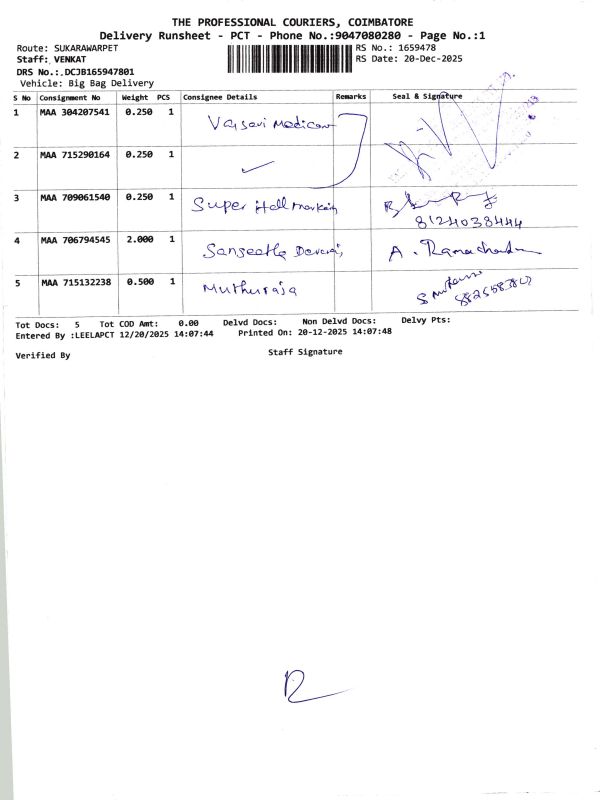 THE PROFESSIONAL COURIERS, COIMBATORE
Delivery Runsheet - PCT - Phone No.:9047080280 - Page No.:1
Route: SUKARAWARPET
RS No.: 1659478
Staff: VENKAT
RS Date: 20-Dec-2025
DRS No.:.DCJB165947801
Vehicle: Big Bag Delivery
S No Consignment No Weight PCS Consignee Details Remarks Seal & Signature
1 MAA 304207541 0.250 1 Vasavi Medicaw
2 MAA 715290164 0.250 1
3 MAA 709061540 0.250 1 Super Hall Markein
8124038444
4 MAA 706794545 2.000 1 Sangeetha Devaraj A. Ramachandran
5 MAA 715132238 0.500 1 Muthuraja
Tot Docs: 5 Tot COD Amt: 0.00 Delvd Docs: Non Delvd Docs: Delvy Pts:
Entered By :LEELAPCT 12/20/2025 14:07:44 Printed On: 20-12-2025 14:07:48
Verified By Staff Signature